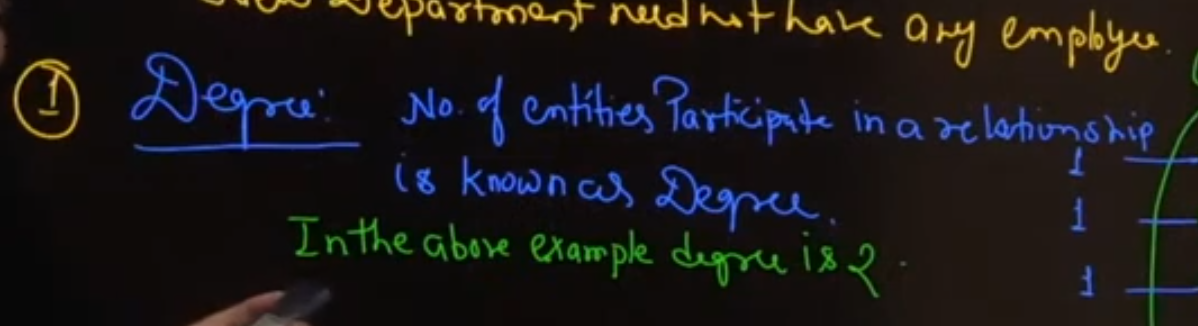 Department need not have any employee.
① Degree: No. of entities Participate in a relationship
is known as Degree.
In the above example degree is 2.
1
1
1